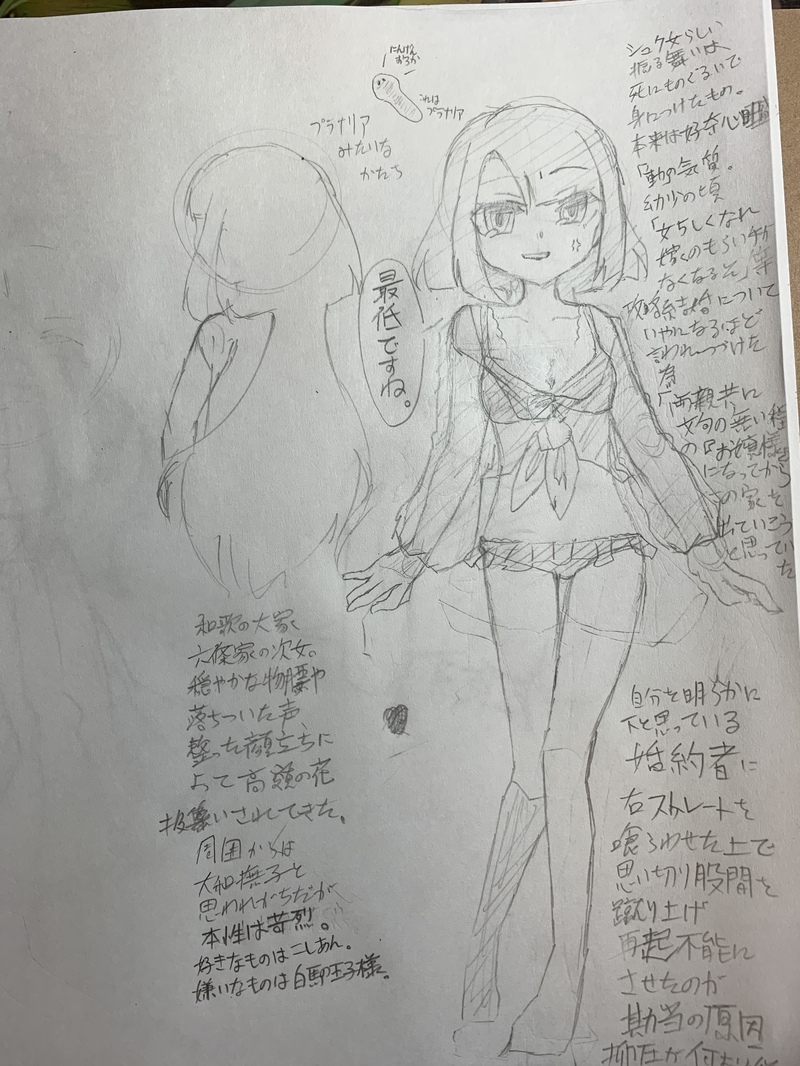 にんげん
おろか
これは
プラナリア
プラナリア
みたいな
かたち
シュク女らしい
振る舞いは
死にものぐるいで
身につけたもの。
本来は好奇心旺
「動」の気質。
幼少の頃
「女らしくなれ
嫁のもらい手が
なくなるぞ」等
政略結婚について
いやになるほど
言われつづけた
為
「両親共に
文句の無い程
の『お嬢様』
になってから
この家を
出ていこう
と思っていた
最低ですね。
和歌の大家
六條家の次女。
穏やかな物腰や
落ちついた声、
整った顔立ちに
よって高嶺の花
扱いされてきた。
周囲からは
大和撫子と
思われがちだが
本性は苛烈。
好きなものはこしあん。
嫌いなものは白馬の王子様。
自分を明らかに
下と思っている
婚約者に
右ストレートを
喰らわせた上で
思い切り股間を
蹴り上げ
再起不能に
させたのが
勘当の原因